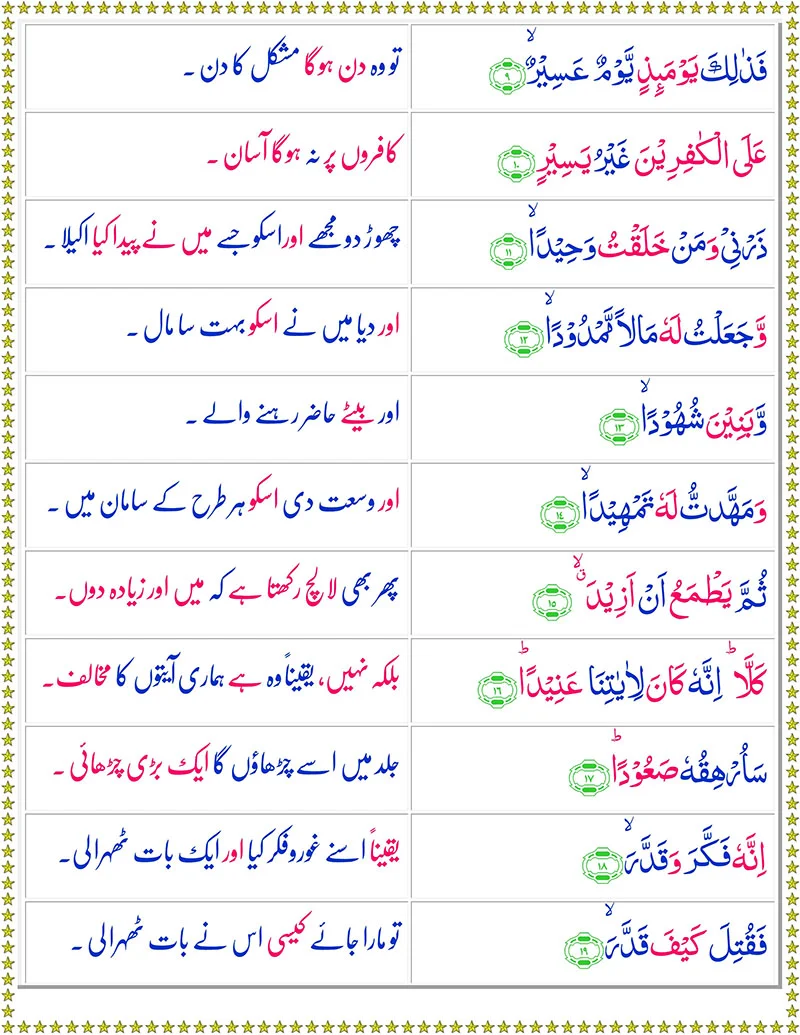 فَذٰلِكَ يَوْمَىِٕذٍ يَّوْمٌ عَسِيْرٌۙ ۹
تو وہ دن ہوگا مشکل کا دن ۔
عَلَى الْكٰفِرِيْنَ غَيْرُ يَسِيْرٍ ۱۰
کافروں پر نہ ہوگا آسان ۔
ذَرْنِيْ وَمَنْ خَلَقْتُ وَحِيْدًاۙ ۱۱
چھوڑ دو مجھے اور اسکو جسے میں نے پیدا کیا اکیلا ۔
وَّجَعَلْتُ لَهٗ مَالًا مَّمْدُوْدًاۙ ۱۲
اور دیا میں نے اسکو بہت سا مال ۔
وَّبَنِيْنَ شُهُوْدًاۙ ۱۳
اور بیٹے حاضر رہنے والے ۔
وَمَهَّدتُّ لَهٗ تَمْهِيْدًاۙ ۱٤
اور وسعت دی اسکو ہر طرح کے سامان میں ۔
ثُمَّ يَطْمَعُ اَنْ اَزِيْدَۙۗ ۱۵
پھر بھی لالچ رکھتا ہے کہ میں اور زیادہ دوں۔
كَلَّاؕ اِنَّهٗ كَانَ لِاٰيٰتِنَا عَنِيْدًاؕ ۱٦
بلکہ نہیں، یقیناً وہ ہے ہماری آیتوں کا مخالف۔
سَاُرْهِقُهٗ صَعُوْدًاؕ ۱۷
جلد میں اسے چڑھاؤں گا ایک بڑی چڑھائی ۔
اِنَّهٗ فَكَّرَ وَقَدَّرَۙ ۱۸
یقیناً اسنے غوروفکر کیا اور ایک بات ٹھہرالی۔
فَقُتِلَ كَيْفَ قَدَّرَۙ ۱۹
تو مارا جائے کیسی اس نے بات ٹھہرالی ۔